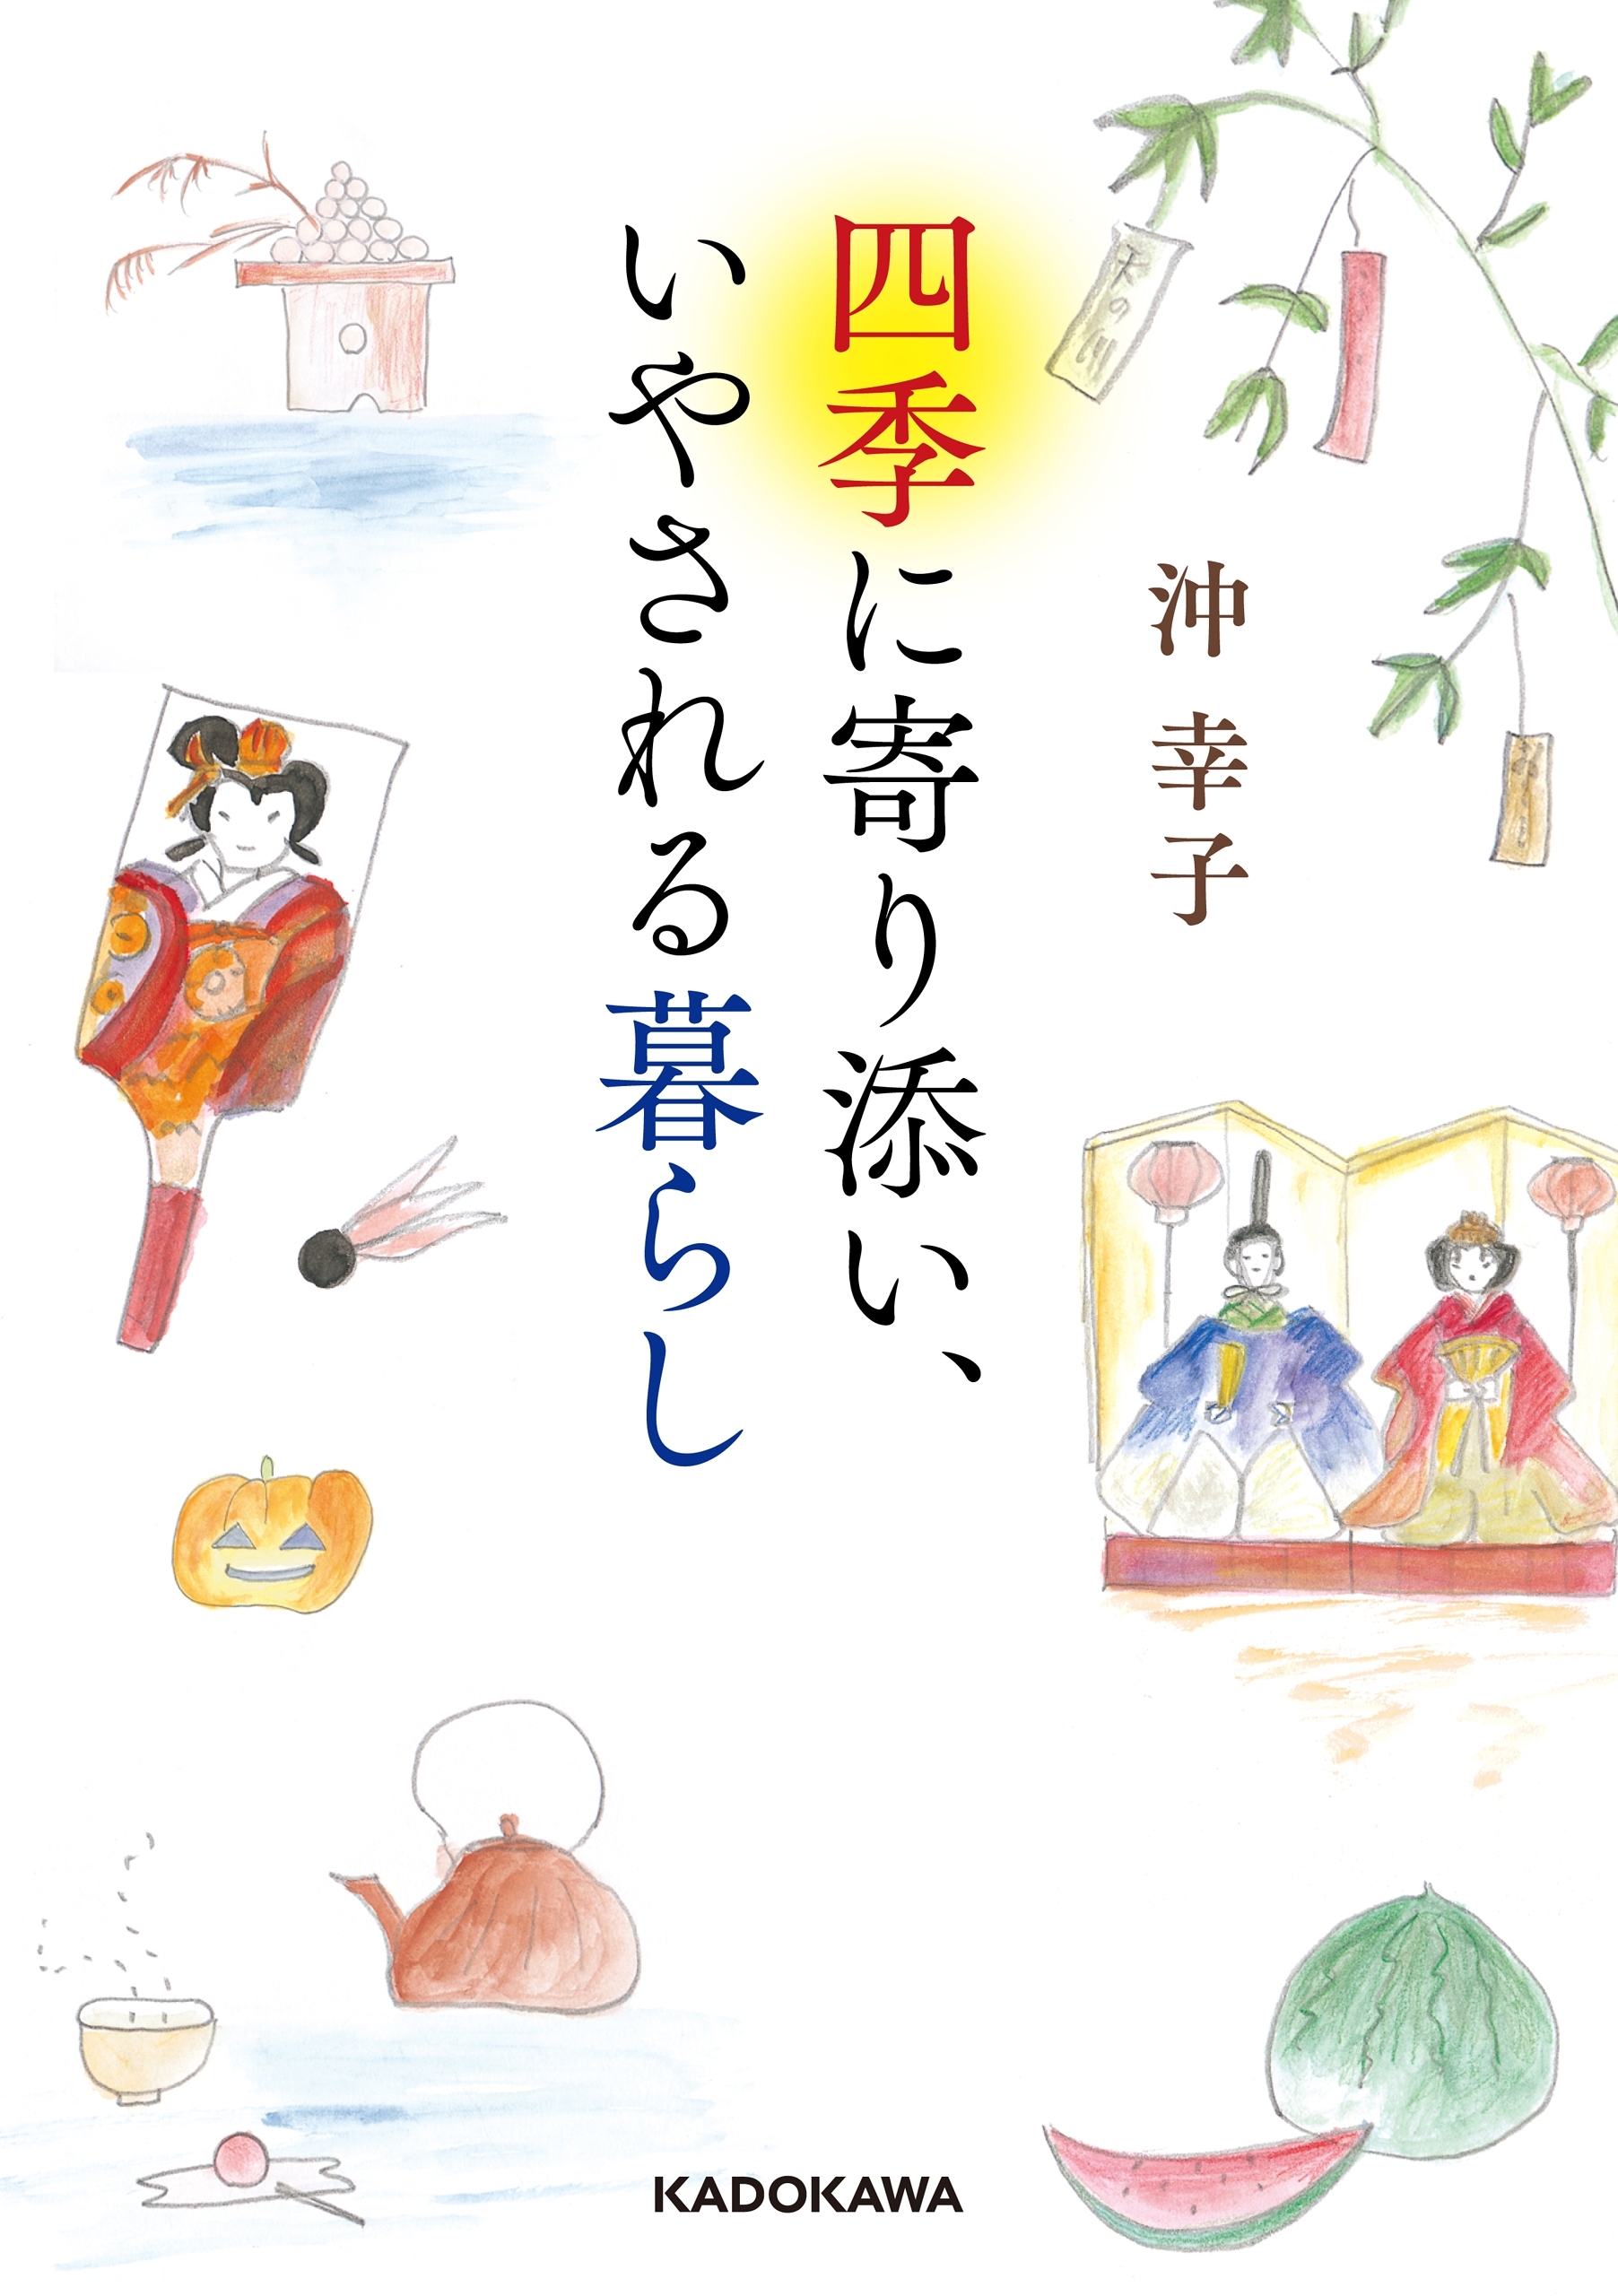 沖 幸子
四季に寄り添い、
いやされる暮らし
天の川
KADOKAWA